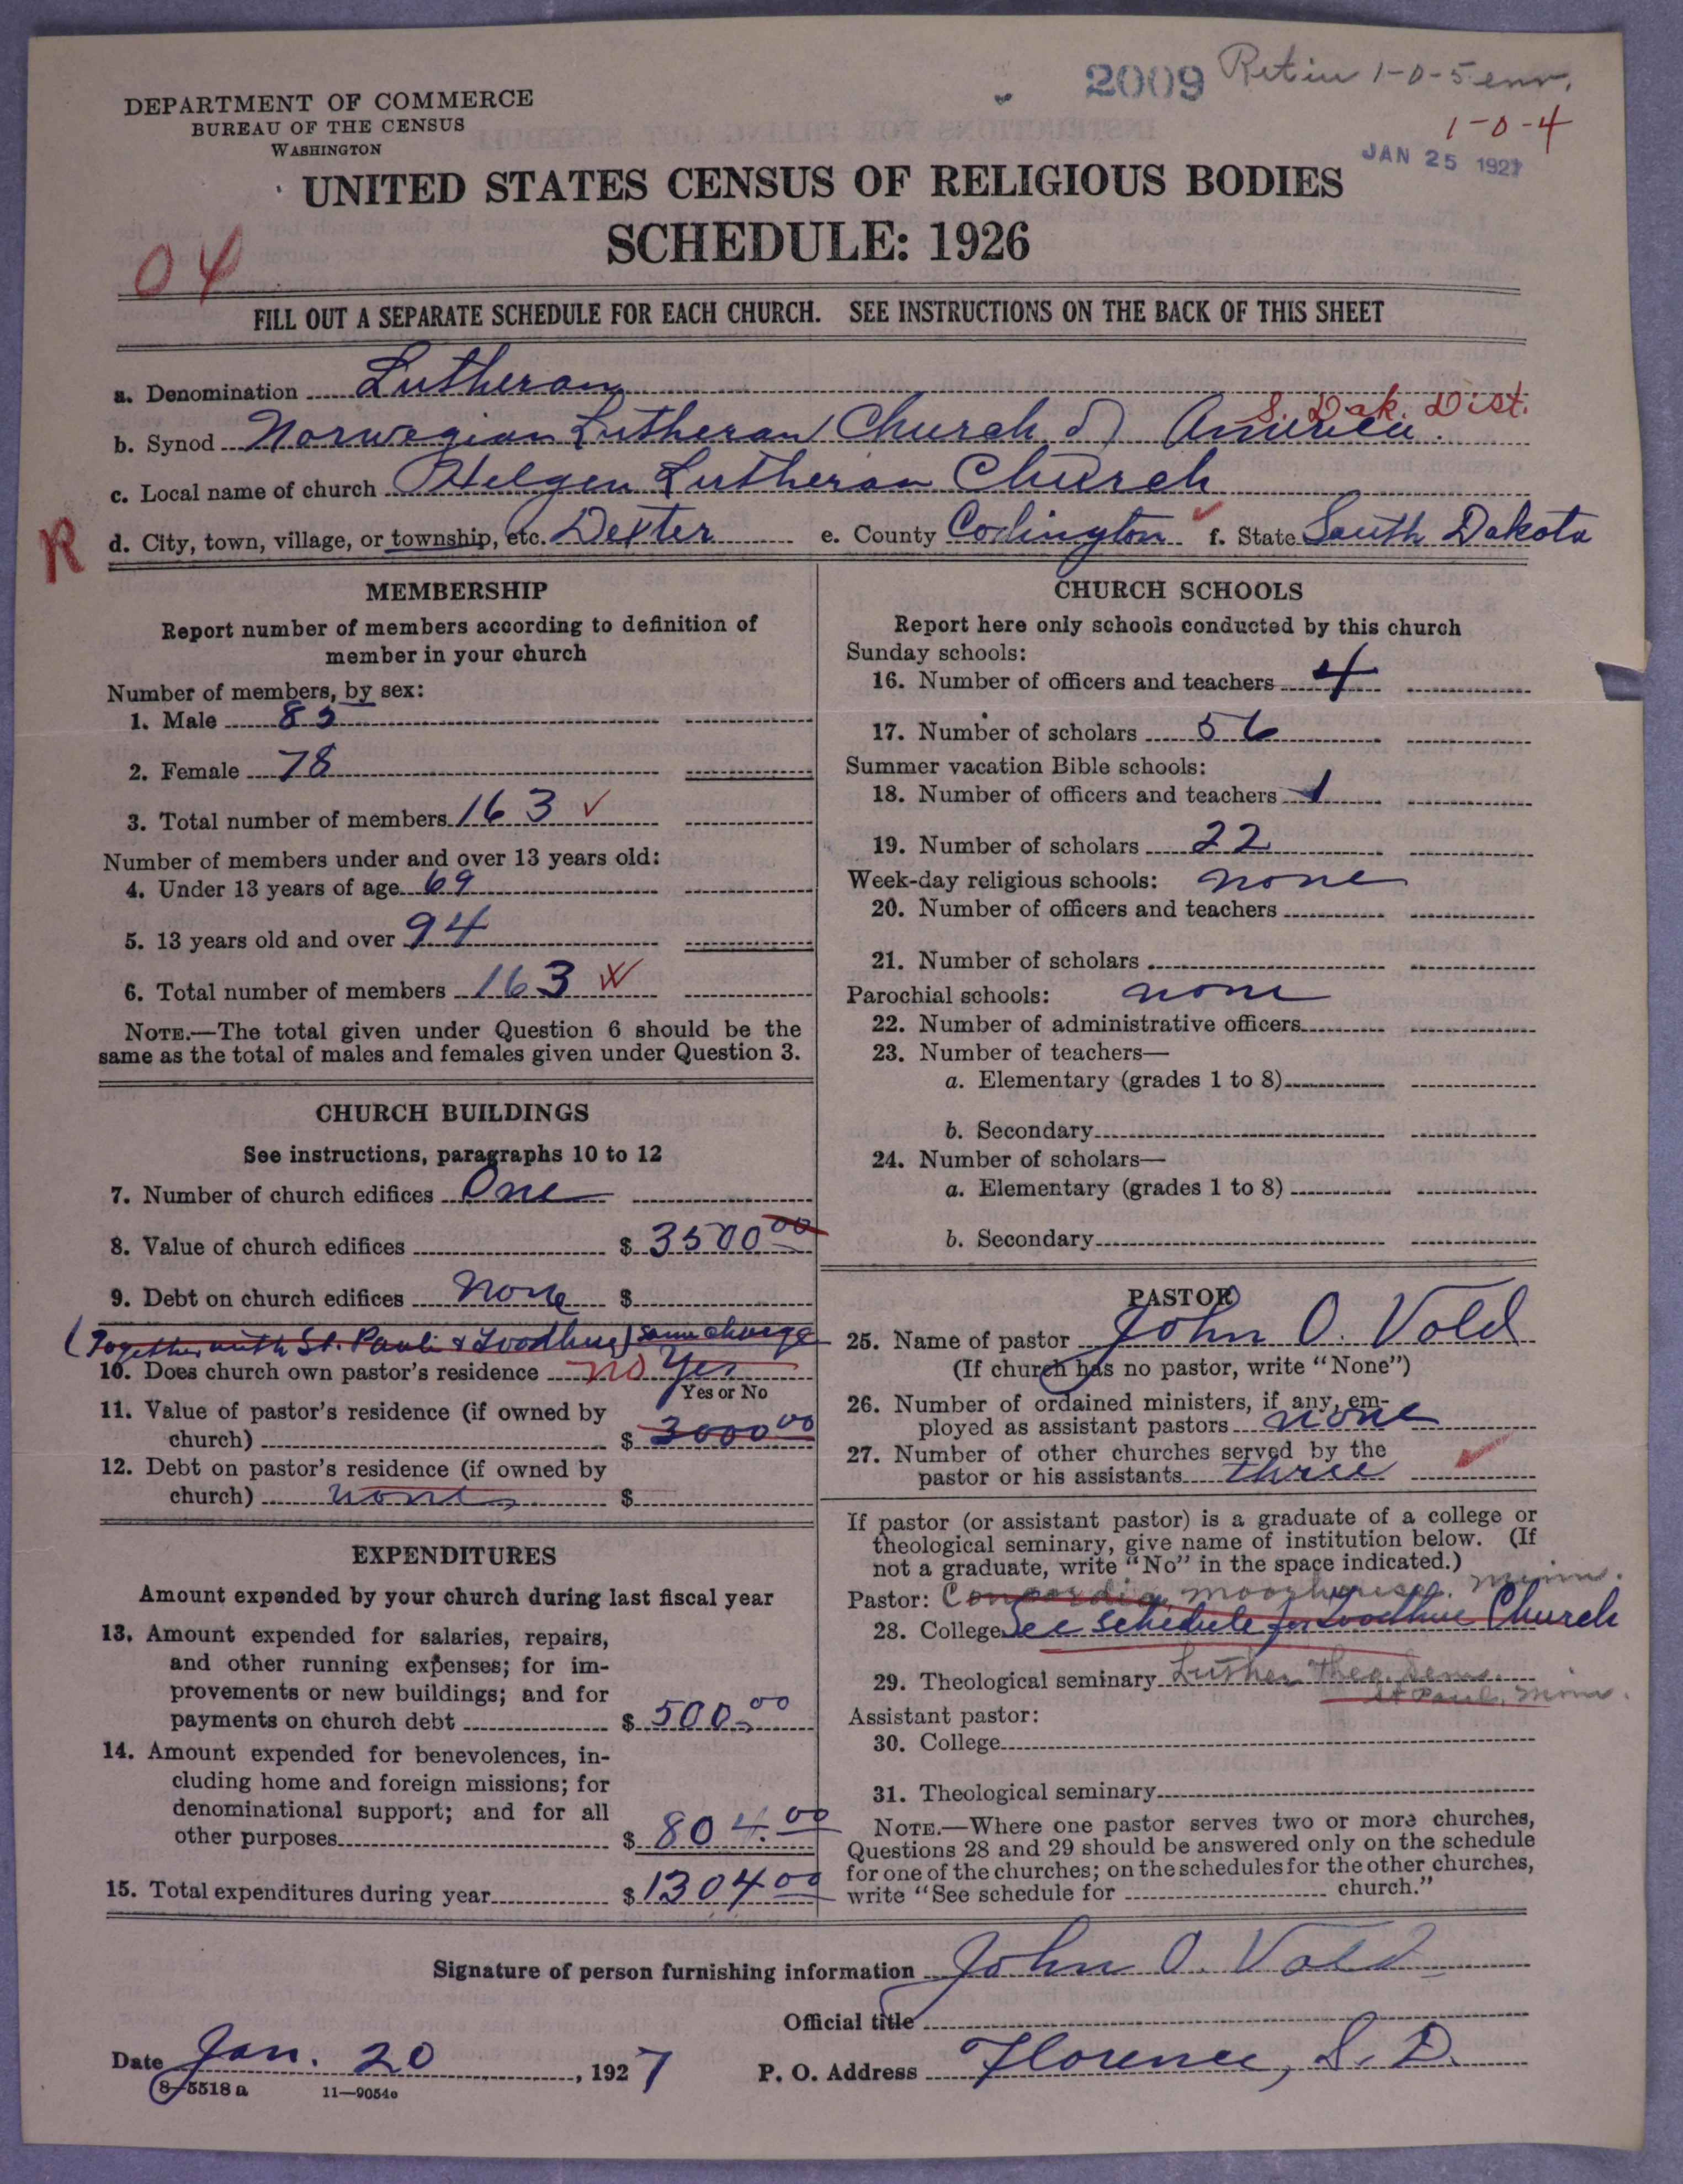 2009 1-0-5 env.
1-0-4
DEPARTMENT OF COMMERCE
BUREAU OF THE CENSUS
WASHINGTON
JAN 25 1927
UNITED STATES CENSUS OF RELIGIOUS BODIES
SCHEDULE: 1926
04
FILL OUT A SEPARATE SCHEDULE FOR EACH CHURCH. SEE INSTRUCTIONS ON THE BACK OF THIS SHEET
a. Denomination Lutheran
S. Dak. Dist.
b. Synod Norwegian Lutheran Church of America.
c. Local name of church Helgen Lutheran Church
R
d. City, town, village, or township, etc. Dexter e. County Codington f. State South Dakota
MEMBERSHIP
Report number of members according to definition of
member in your church
Number of members, by sex:
1. Male 85
2. Female 78
3. Total number of members 163
Number of members under and over 13 years old:
4. Under 13 years of age 69
5. 13 years old and over 94
6. Total number of members 163
NOTE.—The total given under Question 6 should be the
same as the total of males and females given under Question 3.
CHURCH BUILDINGS
See instructions, paragraphs 10 to 12
7. Number of church edifices One
8. Value of church edifices $ 3500 00
9. Debt on church edifices None $
(Together with St. Pauli & Goodhue) same charge
10. Does church own pastor's residence no Yes
Yes or No
11. Value of pastor's residence (if owned by
church) $ 3000 00
12. Debt on pastor's residence (if owned by
church) none $
EXPENDITURES
Amount expended by your church during last fiscal year
13. Amount expended for salaries, repairs,
and other running expenses; for im-
provements or new buildings; and for
payments on church debt $ 500.00
14. Amount expended for benevolences, in-
cluding home and foreign missions; for
denominational support; and for all
other purposes $ 804.00
15. Total expenditures during year $ 1304 00
CHURCH SCHOOLS
Report here only schools conducted by this church
Sunday schools:
16. Number of officers and teachers 4
17. Number of scholars 56
Summer vacation Bible schools:
18. Number of officers and teachers 1
19. Number of scholars 22
Week-day religious schools: none
20. Number of officers and teachers
21. Number of scholars
Parochial schools: none
22. Number of administrative officers
23. Number of teachers—
a. Elementary (grades 1 to 8)
b. Secondary
24. Number of scholars—
a. Elementary (grades 1 to 8)
b. Secondary
PASTOR
25. Name of pastor John O. Vold
(If church has no pastor, write "None")
26. Number of ordained ministers, if any, em-
ployed as assistant pastors none
27. Number of other churches served by the
pastor or his assistants three
If pastor (or assistant pastor) is a graduate of a college or
theological seminary, give name of institution below. (If
not a graduate, write "No" in the space indicated.)
Pastor: Concordia, Moorhead, Minn.
28. College See schedule for Goodhue Church
29. Theological seminary Luther Theo. Sem.
St Paul, Minn.
Assistant pastor:
30. College
31. Theological seminary
NOTE.—Where one pastor serves two or more churches,
Questions 28 and 29 should be answered only on the schedule
for one of the churches; on the schedules for the other churches,
write "See schedule for church."
Signature of person furnishing information John O. Vold
Official title
Date Jan. 20, 1927 P. O. Address Florence, S. D.
8-5518 a 11—9054e